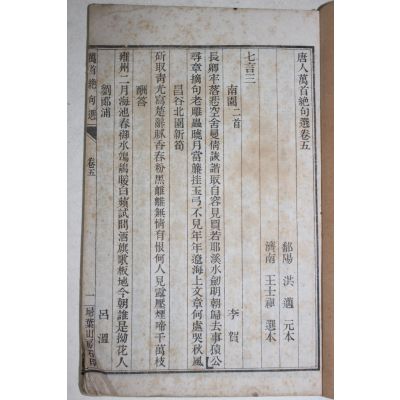 唐人萬首絕句選卷五
鄱陽 洪邁 元本
濟南 王士禛 選本
七言三
李賀
南園二首
長卿牢落悲空舍曼倩詼諧取自容見買若耶溪水劍明朝歸去事猿公
尋章摘句老雕蟲曉月當簾挂玉弓不見年年遼海上文章何處哭秋風
昌谷北園新筍
斫取靑光寫楚辭膩香春粉黑離離無情有恨何人見露壓煙啼千萬枝
酬答
雍州二月海池春御水鵁鶄暖白蘋試問酒旗歌板地今朝誰是拗花人
呂溫
劉郎浦
萬首絕句選
卷五
一
埽葉山房石印